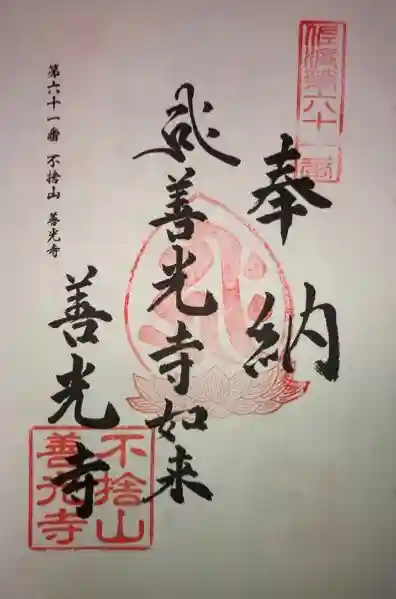 奉納
善光寺如来
善光寺
第六十一番 不捨山 善光寺
不捨山
善光寺